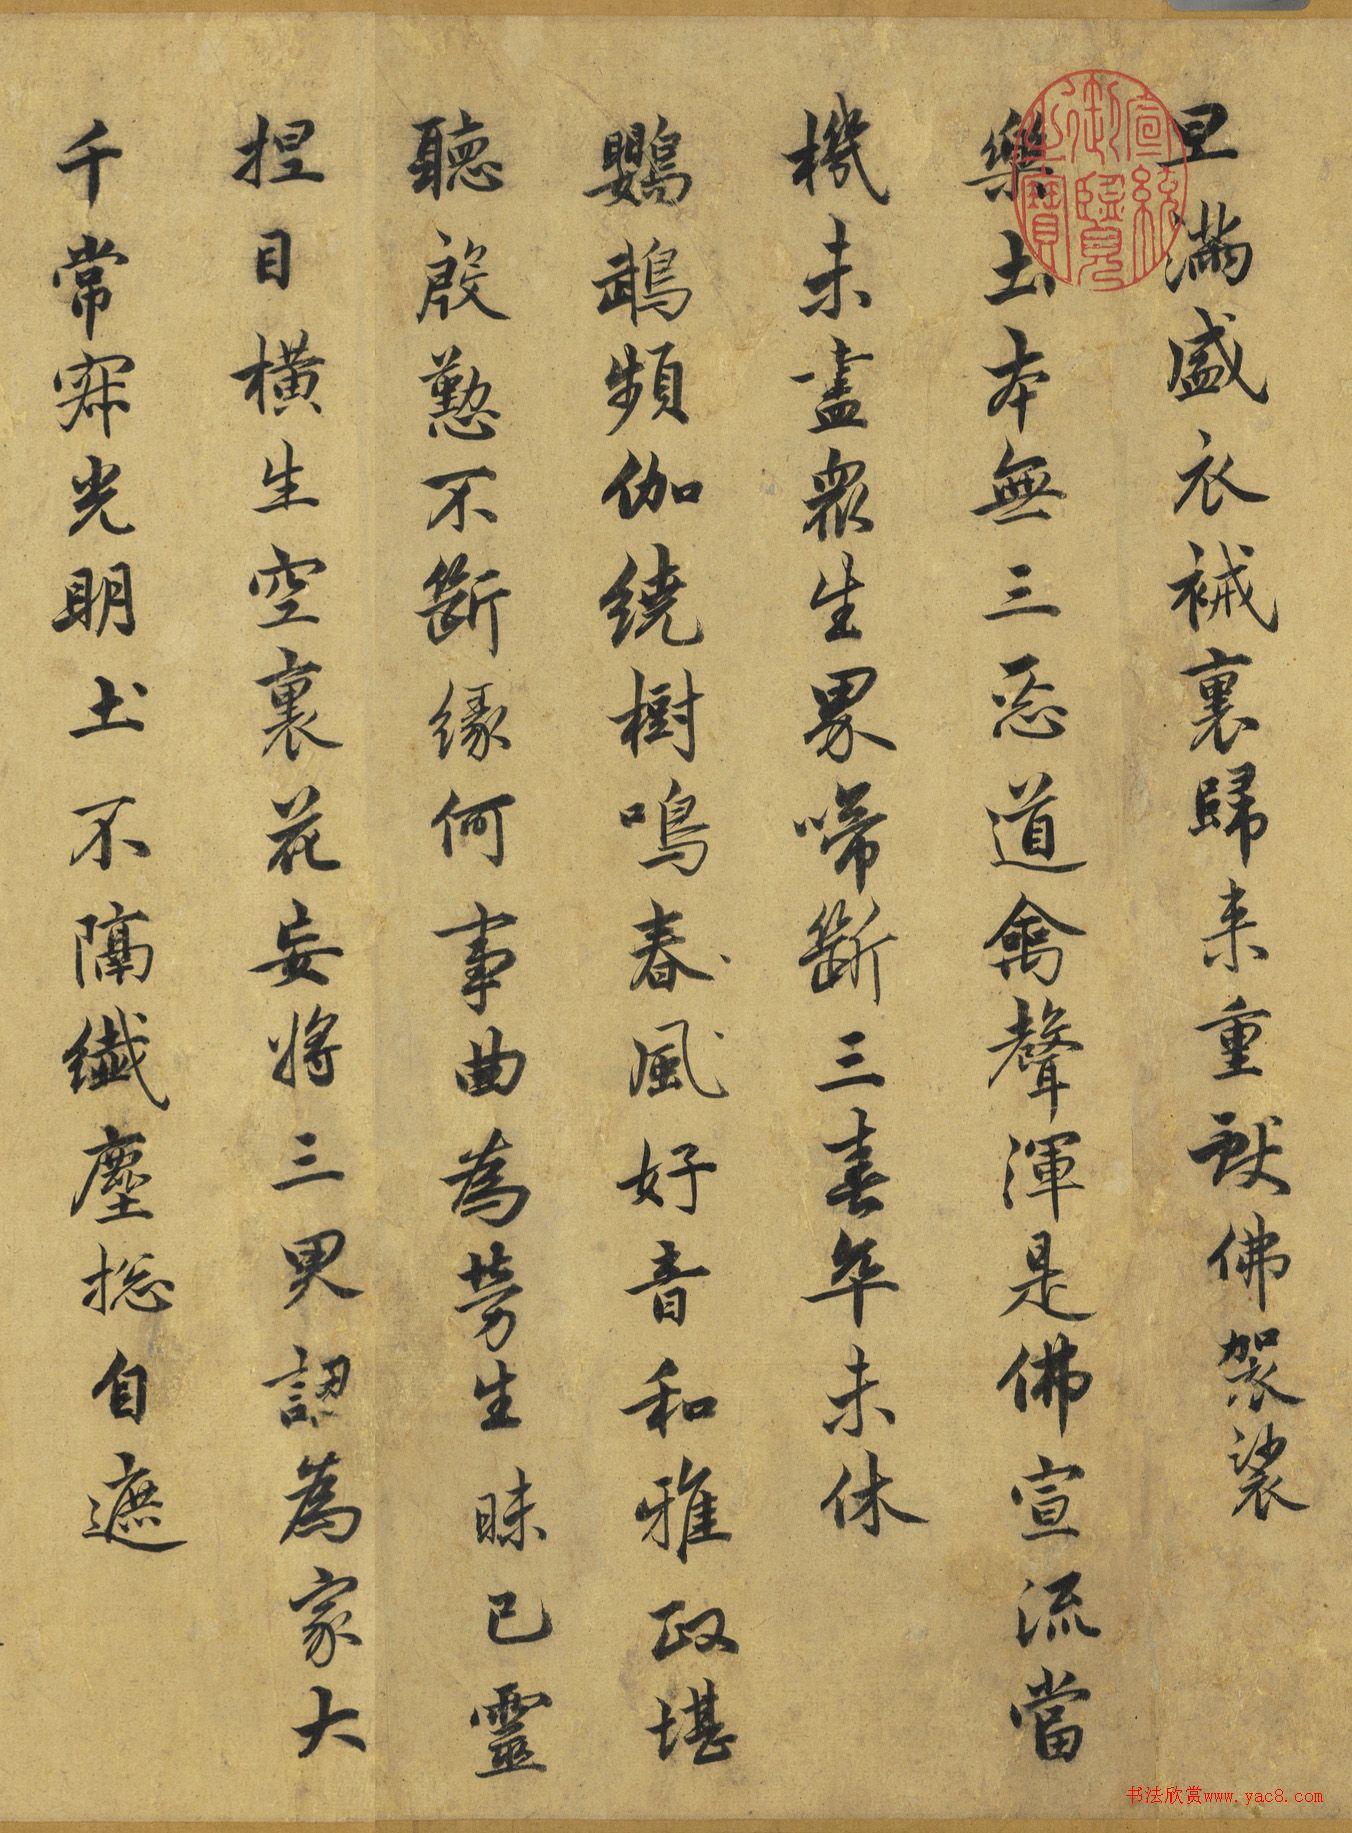 旦滿盛衣祴裏歸来重獻佛袈裟
樂土本無三惡道禽聲渾是佛宣流當
機未盡衆生界啼斷三春卒未休
鸚鵡頻伽繞樹鳴春風好音和雅政堪
聽殷懃不斷緣何事曲為勞生昧已靈
捏目橫生空裏花妄將三界認為家大
千常寂光明土不隔纖塵捴自遮
宣統御覽之寶
书法欣赏www.yac8.com